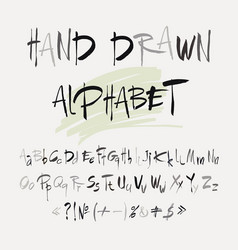 HAND DRAWN
ALPHABET
Aa Bb Cc Dd Ee Ff Gg Hh Ii Jj Kk Ll Mm Nn
Oo Pp Qq Rr Ss Tt Uu Vv Ww Xx Yy Zz
«?!№(-+=)$%&»